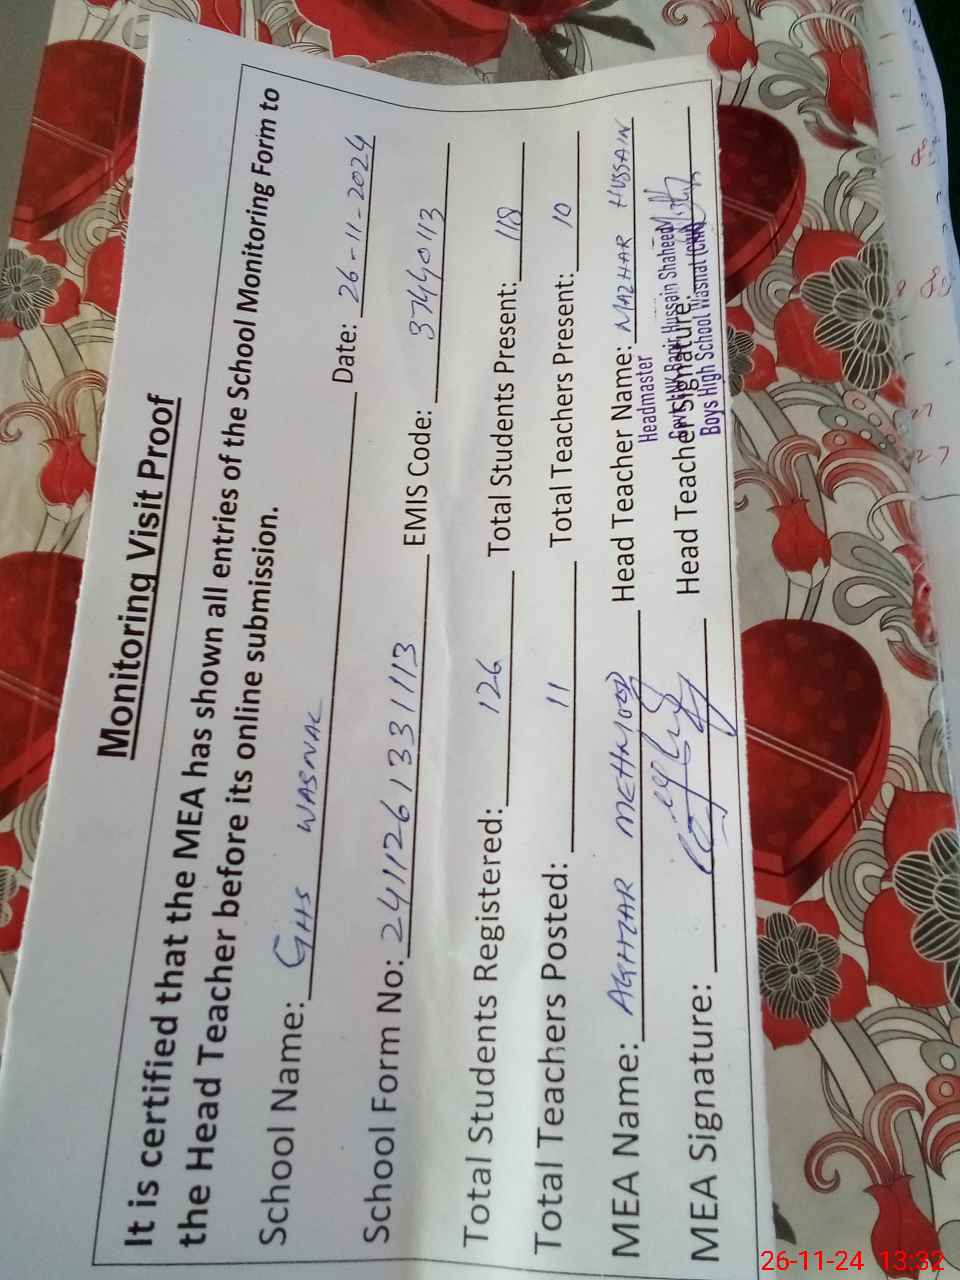 Monitoring Visit Proof
It is certified that the MEA has shown all entries of the School Monitoring Form to
the Head Teacher before its online submission.
School Name: GHS WASNAL Date: 26-11-2024
School Form No: 2411261331113 EMIS Code: 37440113
Total Students Registered: 126 Total Students Present: 118
Total Teachers Posted: 11 Total Teachers Present: 10
MEA Name: AKHTAR MEHMOOD Head Teacher Name: MAZHAR HUSSAIN
Headmaster
Hussain Shaheed
MEA Signature: Head Teacher Signature:
Boys High School Wasnal
26-11-24 13:32